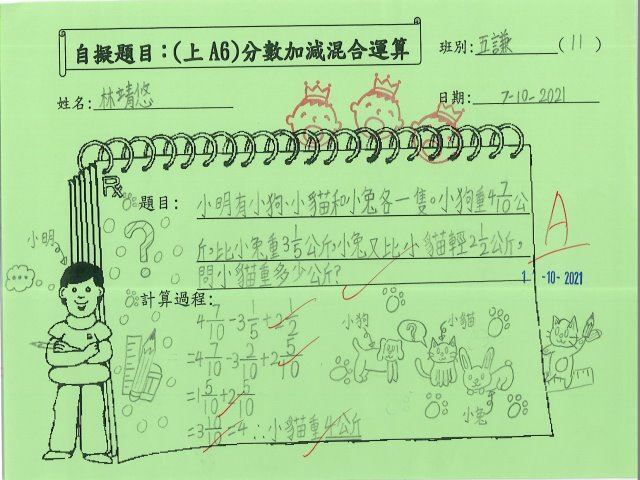 自擬題目：(上 A6)分數加減混合運算
班別: 五謙 (11)
姓名: 林靖悠
日期: 7-10-2021
題目: 小明有小狗、小貓和小兔各一隻。小狗重4 7/10公
斤，比小兔重3 1/5公斤，小兔又比小貓輕2 1/2公斤，
問小貓重多少公斤？
A
-10-2021
小明
計算過程:
4 7/10 - 3 1/5 + 2 1/2
=4 7/10 - 3 2/10 + 2 5/10
=1 5/10 + 2 5/10
=3 10/10 = 4 ∴小貓重4公斤
小狗
?
小貓
小兔